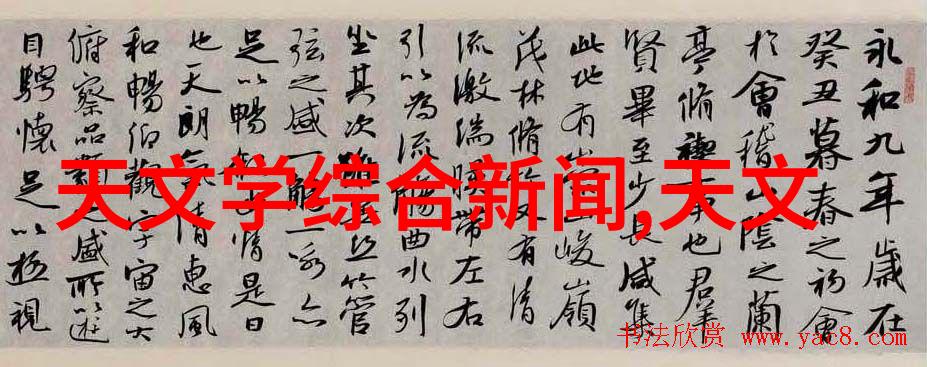 永和九年歲在
癸丑暮春之初會
於會稽山陰之蘭
亭脩禊事也群
賢畢至少長咸集
此地有山峻嶺
茂林脩竹又有清
流激湍暎帶左右
引以為流觴曲水列
坐其次絲竹管
弦之盛一觴一詠亦
足以暢情是日
也天朗氣清惠風
和暢仰觀宇宙之大
俯察品類盛所以遊
目騁懷足以極視
天文学综合新闻,天文
书法欣赏 www.yac8.com